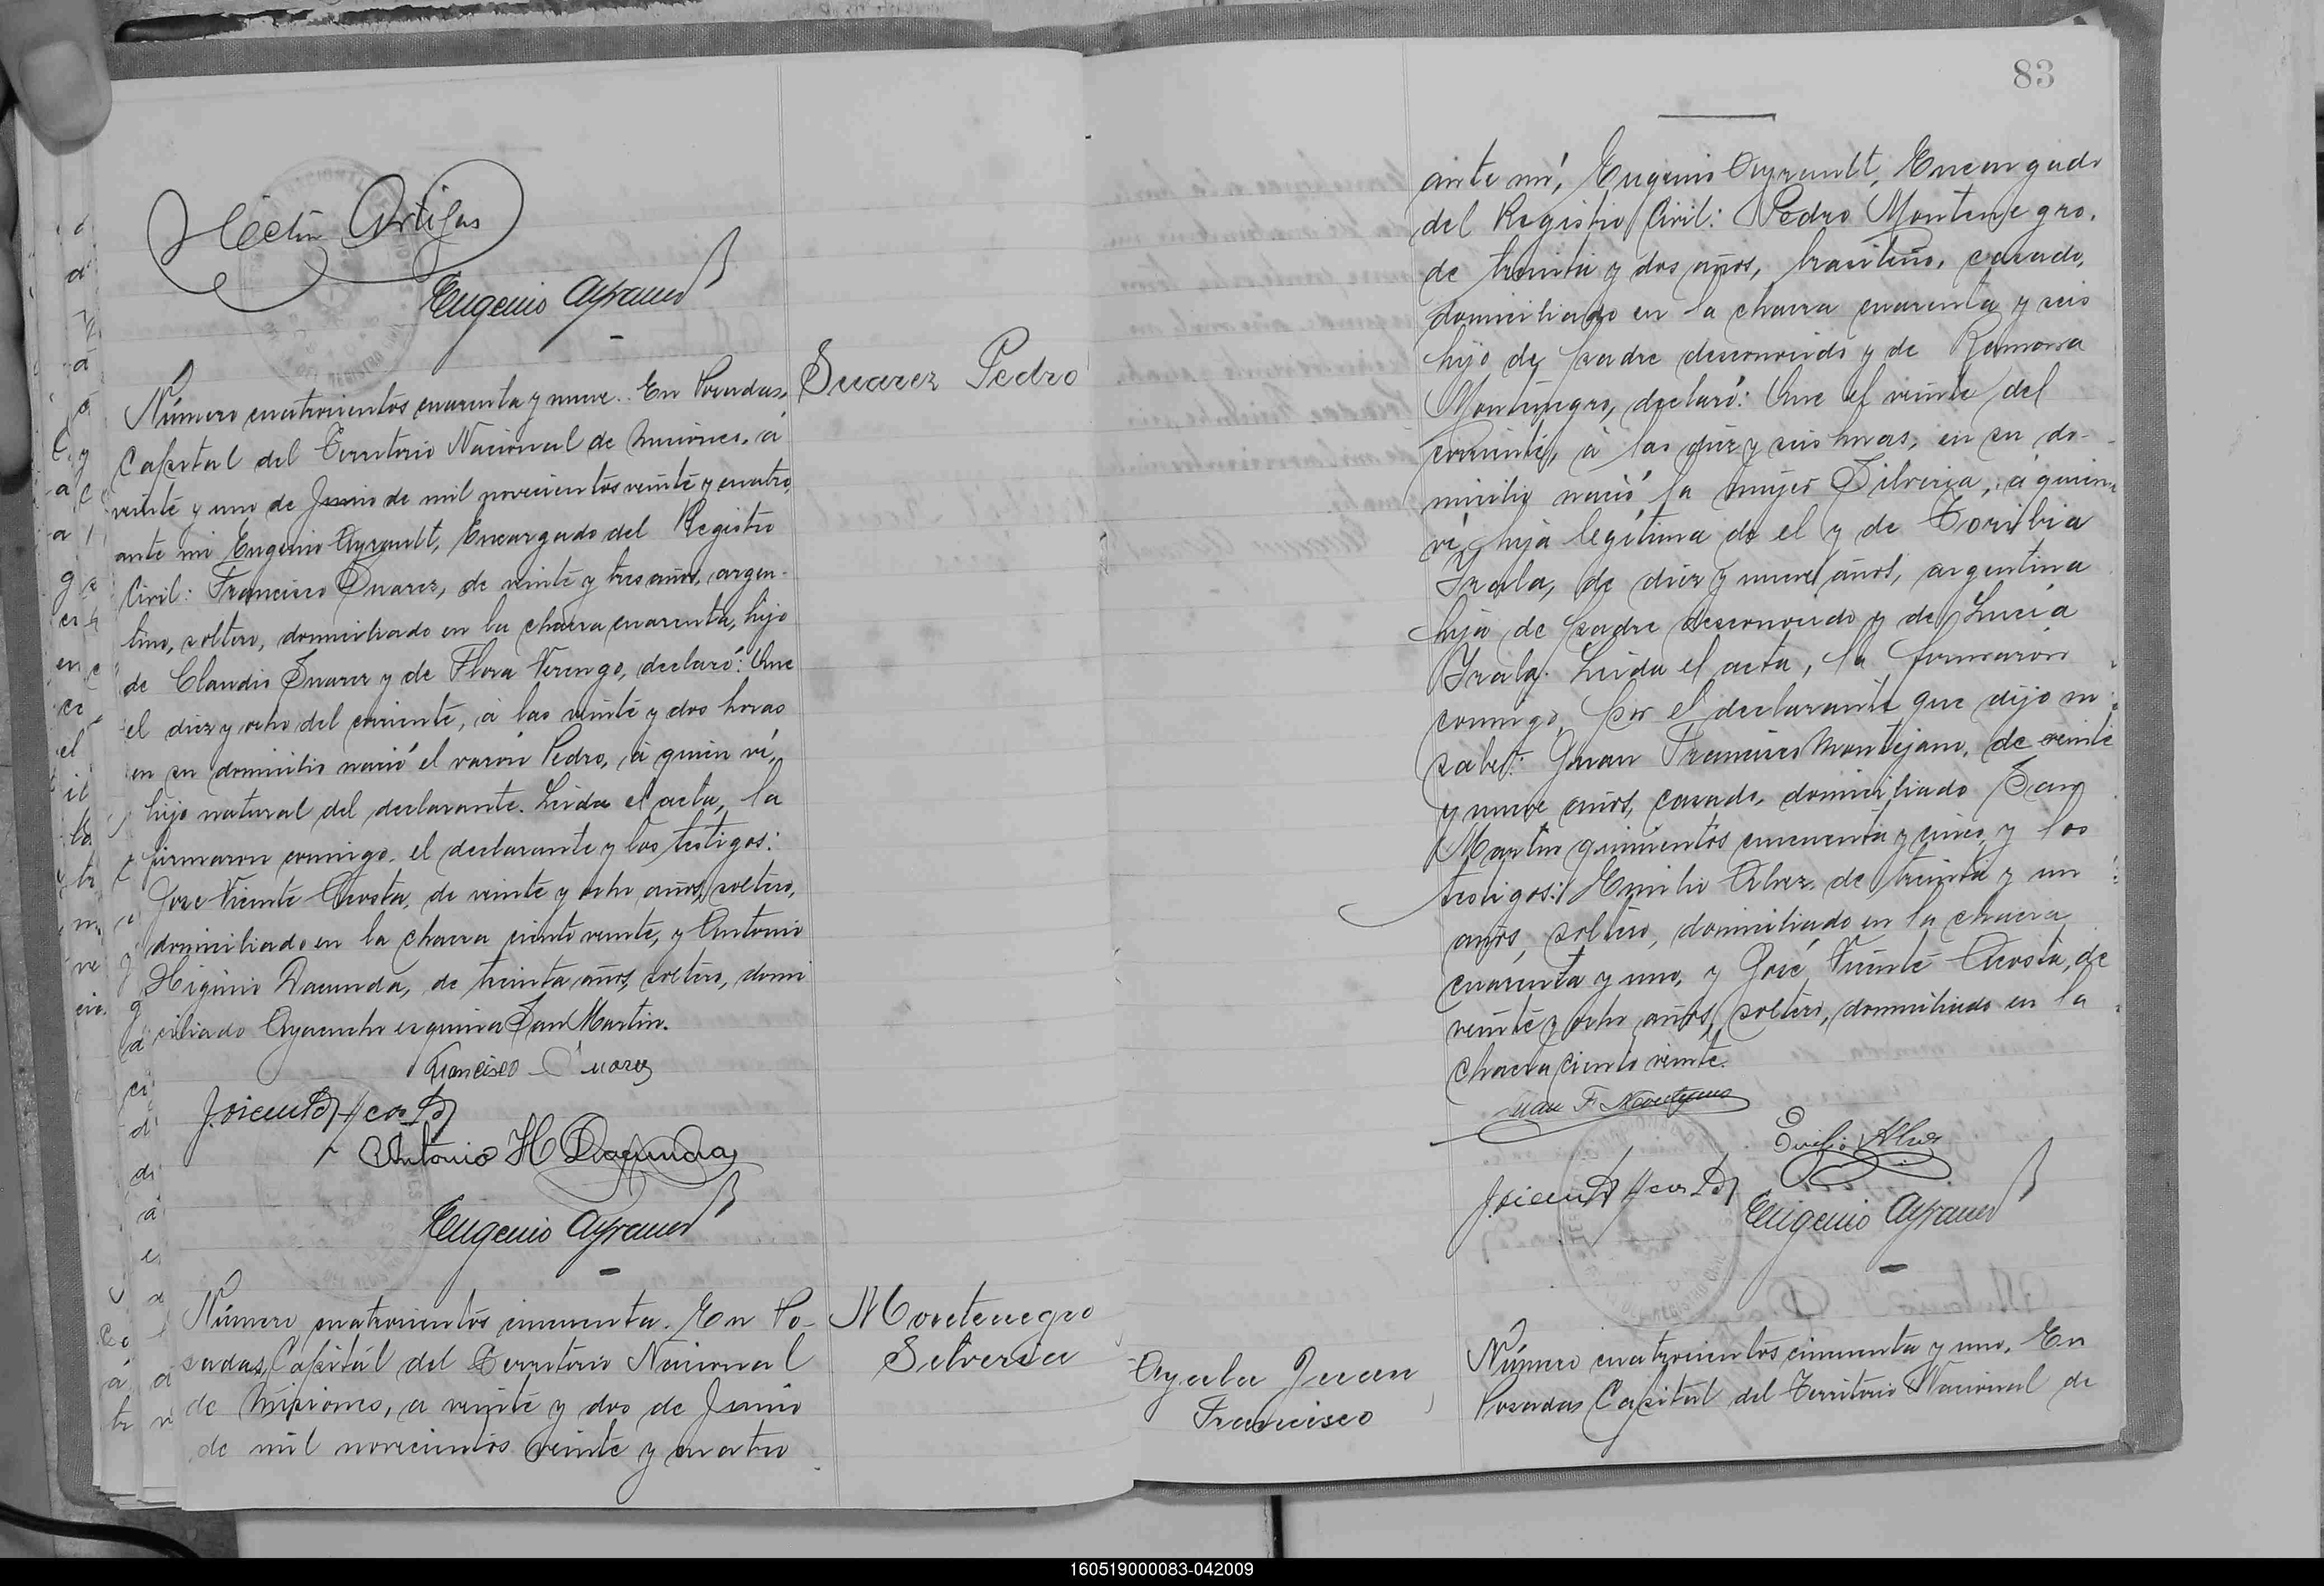 Héctor Artigas
Eugenio Ayrault
Suarez Pedro
Número cuatrocientos cuarenta y nueve. En Posadas,
Capital del Territorio Nacional de Misiones, á
veinte y uno de Junio de mil novecientos veinte y cuatro,
ante mi Eugenio Ayrault, Encargado del Registro
Civil: Francisco Suarez, de veinte y tres años, argen-
tino, soltero, domiciliado en la chacra cuarenta, hijo
de Claudio Suarez y de Flora Verengo, declaró: Que
el diez y ocho del corriente, á las veinte y dos horas
en su domicilio nació el varón Pedro, á quien ví,
hijo natural del declarante. Leida el acta, la
firmaron conmigo, el declarante y los testigos:
Jose Vicente Acosta, de veinte y ocho años, soltero,
domiciliado en la chacra ciento veinte, y Antonio
Higinio Dacunda, de treinta años, soltero, domi
ciliado Ayacucho esquina San Martin.
Francisco Suarez
J. Vicente Acosta
Antonio H Dacunda
Eugenio Ayrault
Montenegro
Silveria
Número cuatrocientos cincuenta. En Po-
sadas, Capital del Territorio Nacional
de Misiones, a veinte y dos de Junio
de mil novecientos veinte y cuatro
83
ante mí, Eugenio Ayrault, Encargado
del Registro Civil: Pedro Montenegro,
de treinta y dos años, brasileño, casado,
domiciliado en la chacra cuarenta y seis
hijo de padre desconocido y de Ramona
Montenegro, declaró: Que el veinte del
corriente, á las diez y seis horas, en su do-
micilio nació la mujer Silveria, á quien
ví, hija legítima de el y de Toribia
Irala, de diez y nueve años, argentina
hija de padre desconocido y de Lucía
Irala. Leida el acta, la firmaron
conmigo, por el declarante que dijo no
saber: Juan Francisco Montejano, de veinte
y nueve años, casado, domiciliado San
Martin quinientos cincuenta y cinco, y los
testigos: Emilio Alvez, de treinta y un
años, soltero, domiciliado en la chacra
cuarenta y uno, y José Vicente Acosta, de
veinte y ocho años, soltero, domiciliado en la
chacra ciento veinte.
Juan F. Montejano
Emilio Alvez
J. Vicente Acosta
Eugenio Ayrault
Ayala Juan
Francisco
Número cuatrocientos cincuenta y uno. En
Posadas Capital del Territorio Nacional de
160519000083-042009